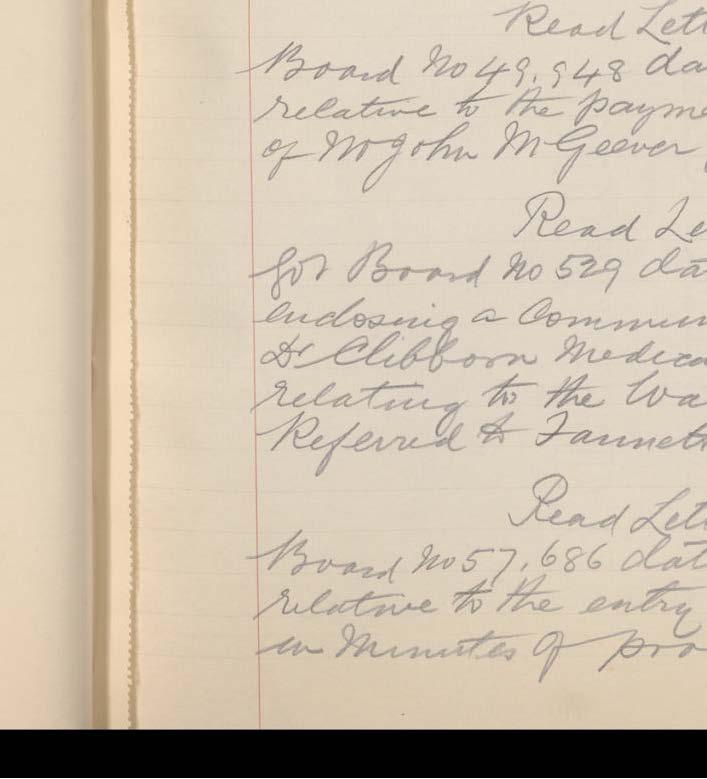 Read Lett
Board No 49,948 da
relative to the payme
of Mr John McGeever
Read Le
Gov Board No 529 dat
enclosing a Commun
Dr Clibborn Medica
relating to the Wa
Referred to Fannet
Read Lett
Board No 57,686 dat
relative to the entry
in Minutes of pro